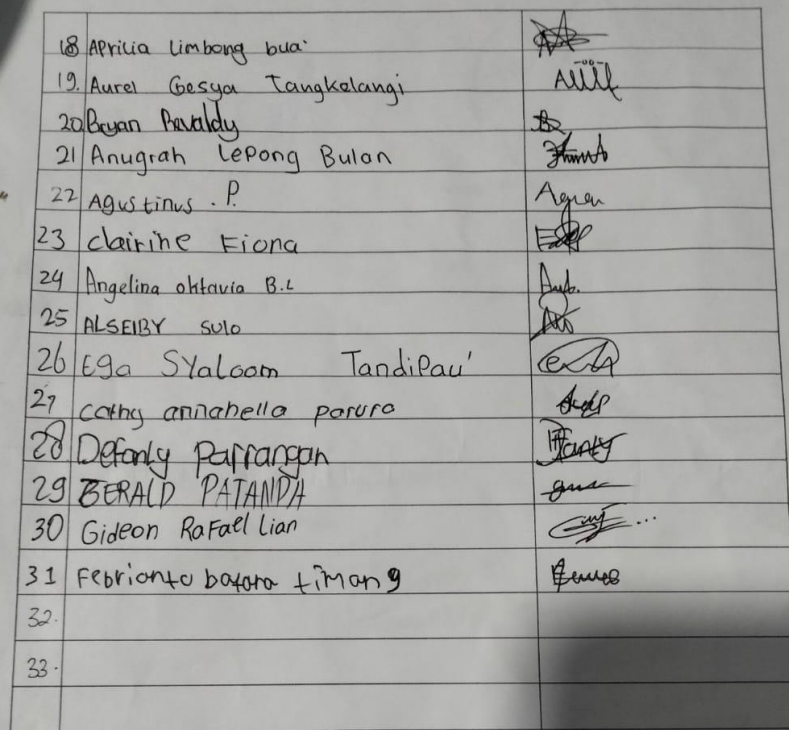 18 Aprilia limbong bua'
19. Aurel Gesya Tangkelangi
20 Bryan Revaldy
21 Anugrah Lepong Bulan
22 Agustinus . P.
23 clairine Fiona
24 Angelina oktavia B.L
25 ALSEIBY SULO
26 Ega Syaloom Tandipau'
27 cathy annabella paruru
28 Defanly Parrangan
29 GERALD PATANDA
30 Gideon Rafael Lian
31 Febrianto batara timang
32.
33.